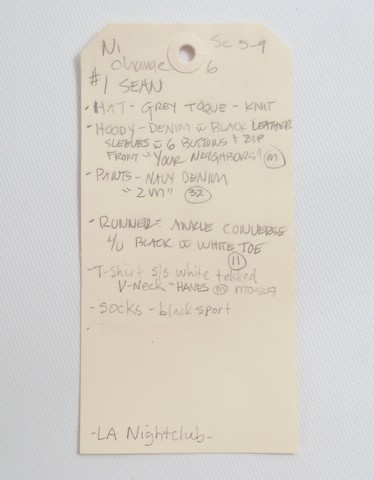 N1 Sc 5-9
Change 6
#1 SEAN
- HAT - GREY TOQUE - KNIT
- HOODY - DENIM W BLACK LEATHER
SLEEVES W 6 BUTTONS + ZIP
FRONT "YOUR NEIGHBORS" M
- PANTS - NAVY DENIM
"2M" 32
- RUNNERS: ANKLE CONVERSE
BLACK W WHITE TOE
11
T-Shirt S/S white tekked
V-Neck - HANES M
- SOCKS - black sport
- LA Nightclub -